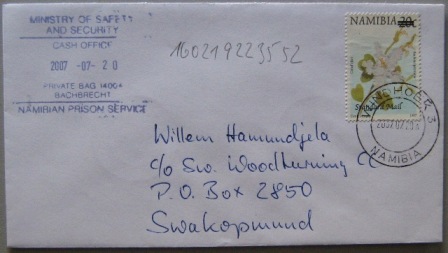 MINISTRY OF SAFETY
AND SECURITY
CASH OFFICE
2007 -07- 20
PRIVATE BAG 14004
BACHBRECHT
NAMIBIAN PRISON SERVICE
16021922355 2
NAMIBIA 20
Standard Mail
WINDHOEK 3
2007.07.
NAMIBIA
Willem Hamundjela
c/o Sw. Woodturning
P.O. Box 2850
Swakopmund